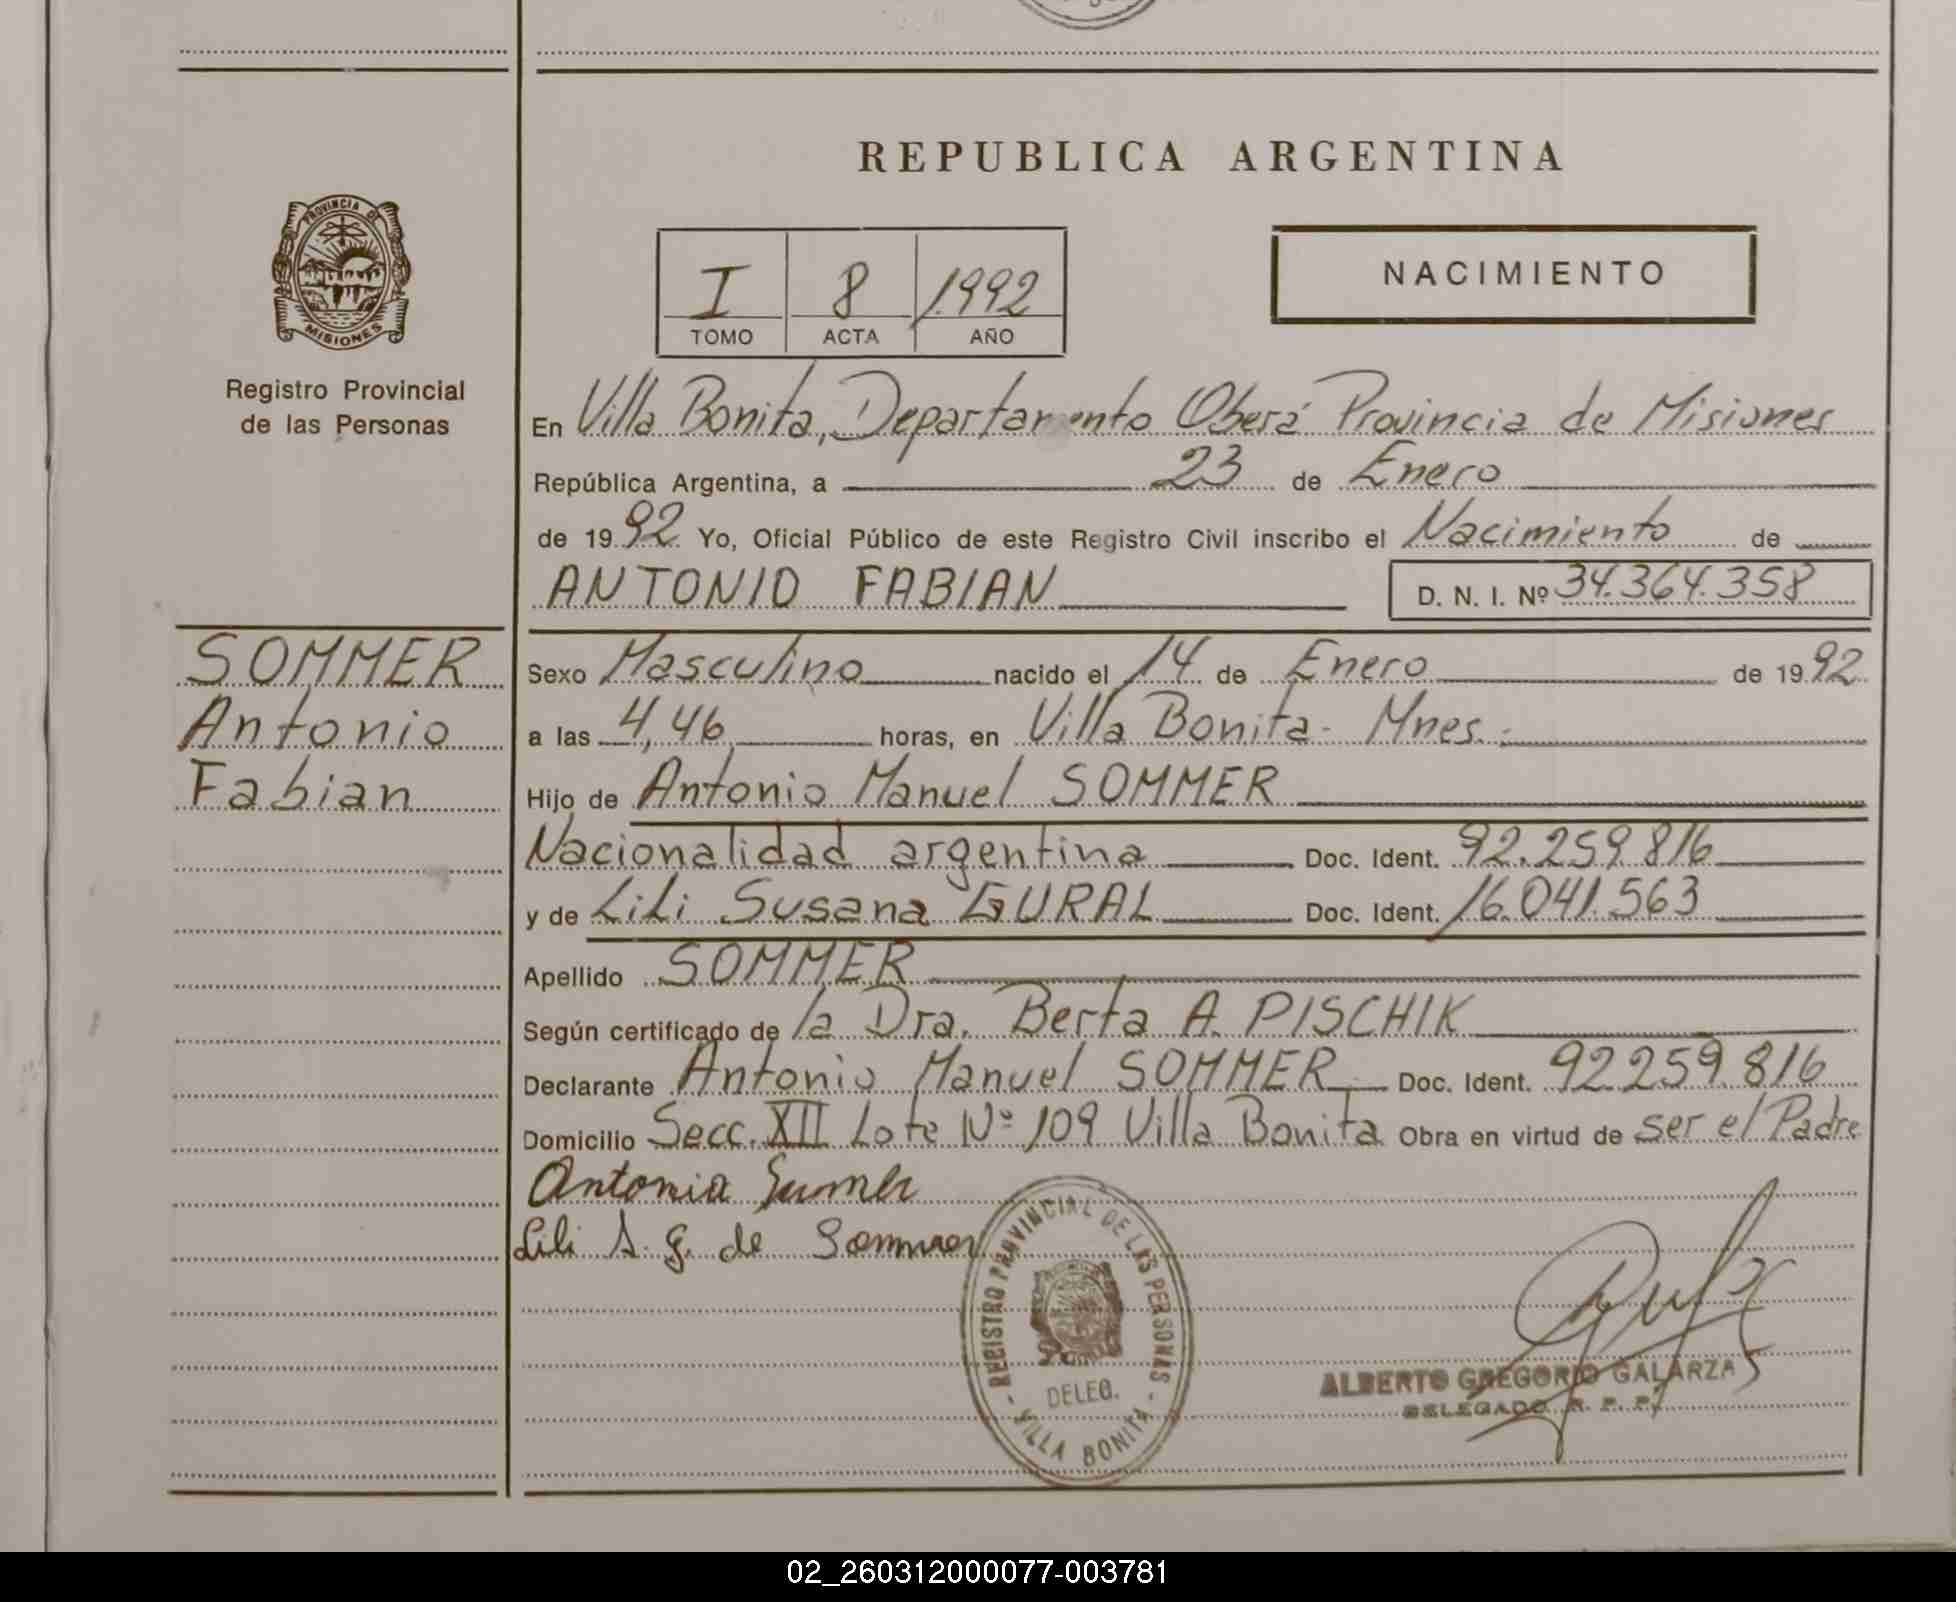 REPUBLICA ARGENTINA
PROVINCIA DE
MISIONES
Registro Provincial
de las Personas
I 8 1992
TOMO ACTA AÑO
NACIMIENTO
En Villa Bonita, Departamento Oberá Provincia de Misiones
República Argentina, a 23 de Enero
de 1992 Yo, Oficial Público de este Registro Civil inscribo el Nacimiento de
ANTONIO FABIAN D. N. I. Nº 34.364.358
SOMMER
Antonio
Fabian
Sexo Masculino nacido el 14 de Enero de 1992
a las 4,46 horas, en Villa Bonita - Mnes.
Hijo de Antonio Manuel SOMMER
Nacionalidad argentina Doc. Ident. 92.259.816
y de Lili Susana GURAL Doc. Ident. 16.041.563
Apellido SOMMER
Según certificado de la Dra. Berta A. PISCHIK
Declarante Antonio Manuel SOMMER Doc. Ident. 92.259.816
Domicilio Secc. XII Lote Nº 109 Villa Bonita Obra en virtud de ser el Padre
Lili S. G. de Sommer
REGISTRO PROVINCIAL DE LAS PERSONAS
DELEG.
- VILLA BONITA -
ALBERTO GREGORIO GALARZA
DELEGADO R. P. P.
02_260312000077-003781